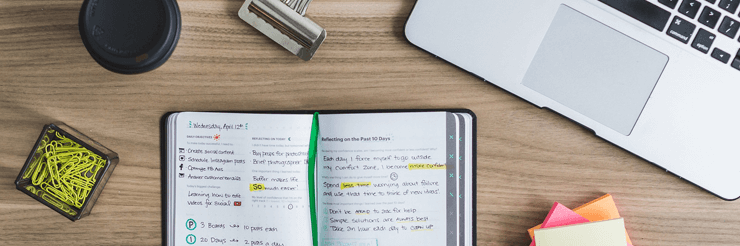 Wednesday, April 12th
Create social content
Schedule Instagram posts
Optimize FB Ads
Answer customer emails
Learning how to edit
videos for Social!
3 Boards
10 pins each
20 Days
2 pins a day
Buy props for production
Brief photographer
Buffer makes life
SO much easier!
Reflecting on the Past 10 Days
Each day I force myself to go outside
my comfort zone, I become more confident
Spend less time worrying about failure
and use that time to think of new ideas!
Don't be afraid to ask for help
Simple solutions are always best
Take an hour each day to catch up